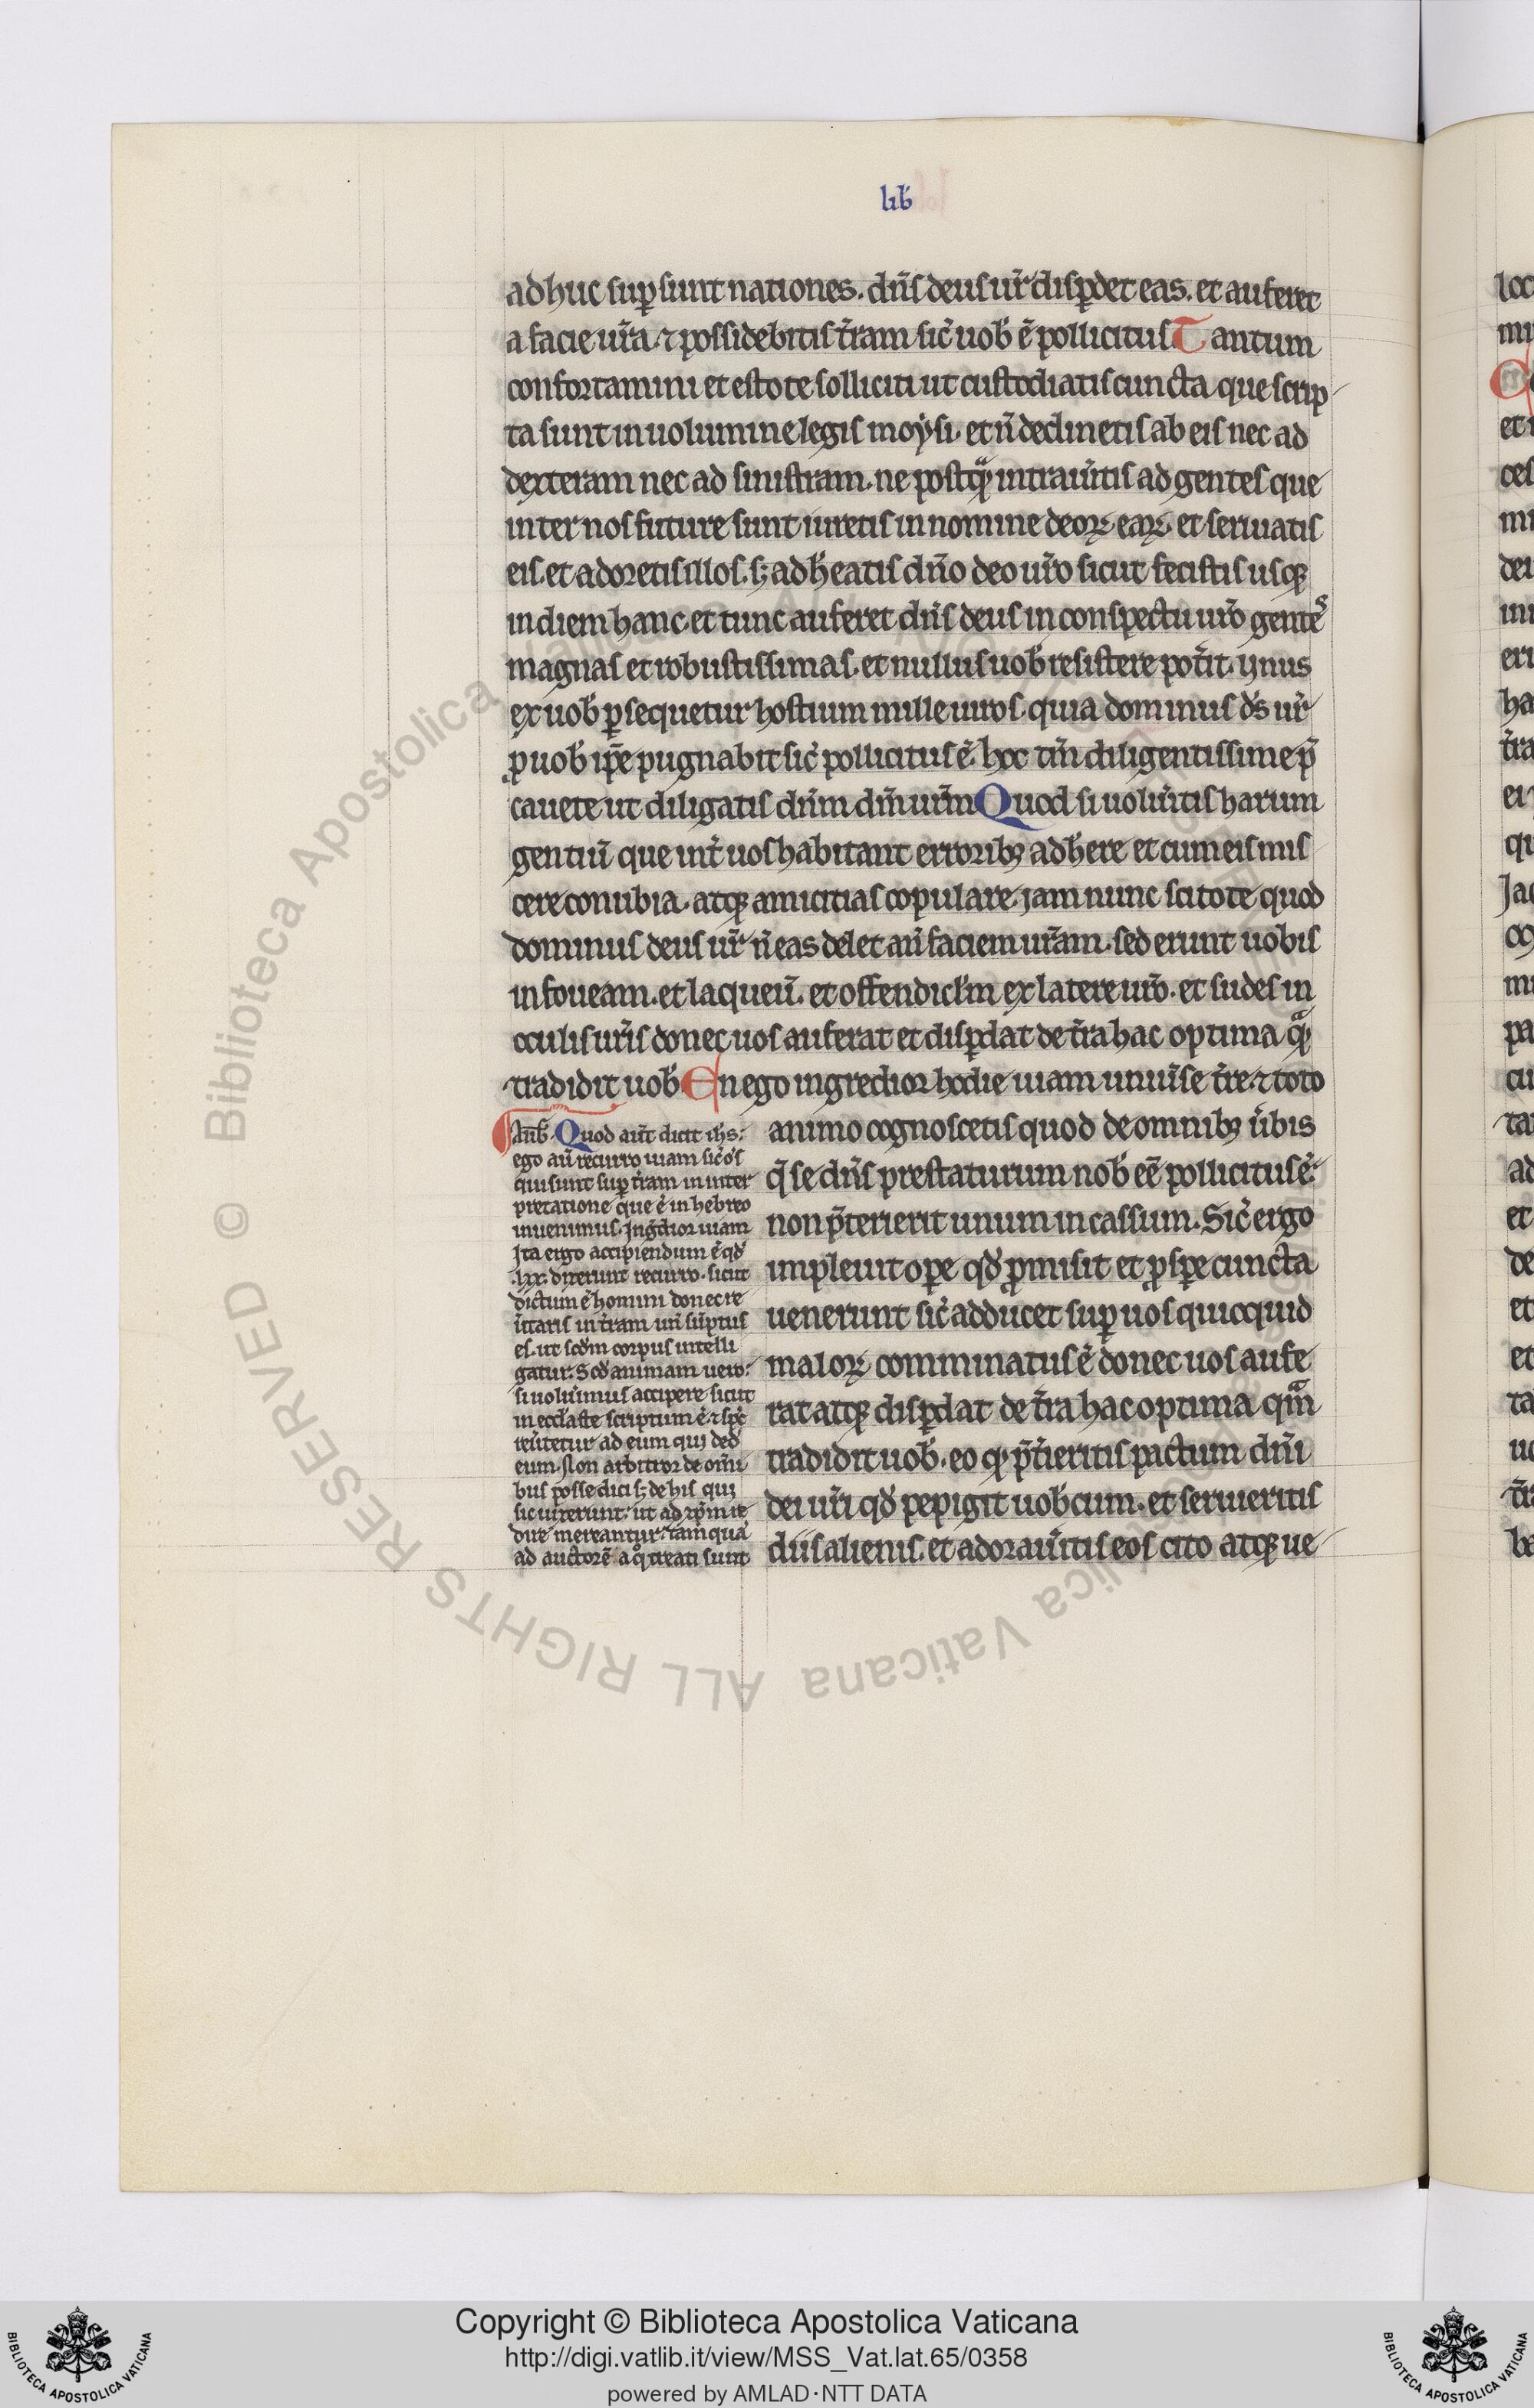 lib̄
adhuc sup̱sunt nationes. dn̄s deus ur̄ disp̱det eas. et auferet
a facie ur̄a ⁊ possidebitis t̄ram sic̄ uob̄ ē pollicitus Tantum
confortamini et estote solliciti ut custodiatis cuncta que scrip
ta sunt in uolumine legis moẏsi. et n̄ declinetis ab eis nec ad
dexteram nec ad sinistram. ne postqͣ intrau̾itis ad gentes que
inter nos future sunt iuretis in nomine deoꝝ eaꝝ. et seruiatis
eis. et adoretis illos. sꝫ adh̾eatis dn̄o deo ur̄o sicut fecistis usqꝫ
in diem hanc et tunc auferet dn̄s deus in conspectu ur̄o gentes
magnas et robustissimas. et nullus uob̄ resistere pot̾it. ynus
ex uob̄ ꝑsequetur hostium mille uiros. quia dominus ds̄ ur̄
ꝓ uob̄ ip̄e pugnabit sic̄ pollicitus ē. hoc tm̄ diligentissime p̄
cauete ut diligatis dn̄m dm̄ urm̄ Quod si uolu̾itis harum
gentiū que int̾ uos habitant erroribꝫ adh̾ere et cum eis mis
cere conubia. atqꝫ amicitias copulare. jam nunc scitote quod
dominus deus ur̄ n̄ eas delet an̄ faciem ur̄am. sed erunt uobis
in foueam. et laqueū. et offendicl̄m ex latere ur̄o. et sudes in
oculis ur̄is donec uos auferat et disꝑdat de t̄ra hac optima qͣ
tradidit uob̄ En ego ingredior hodie uiam uniu̾se t̄re. ⁊ toto
animo cognoscetis quod de omnibꝫ u̾bis
q̄ se dn̄s prestaturum nob̄ eē pollicitus ē.
non p̄terierit unum incassum. Sic̄ ergo
impleuit ope qd̄ ꝓmisit et ꝓspe cuncta
uenerunt sic̄ adducet suꝑ uos quicquid
maloꝝ comminatus ē donec uos aufe
rat atqꝫ disꝑdat de t̄ra hac optima qͣm
tradidit uob̄. eo ꝙ p̄t̾ieritis pactum dn̄i
dei ur̄i qd̄ pepigit uob̄cum. et seruieritis
diis alienis. et adorau̾itis eos cito atqꝫ ue
Au̾b̄. Quod aut̄ dicit ih̄s:
ego au̾ recurro uiam sic̄ o̾s
qui sunt suꝑ t̄ram in inter
pretatione que ē in hebreo
inuenimus. Ingd̾ior uiam
Ita ergo accipiendum ē qd̄
.lxx. dixerunt recurro. sicut
dictum ē homini donec re
u̾taris in t̄ram un̄ su̾ptus
es. ut scd̄m corpus intelli
gatur. Scd̄ animam uero:
si uolu̾imus accipere sicut
in eccl̾aste scriptum ē. ⁊ spc̄
reu̾tetur ad eum qui ded̄
eum. Non arbitror de omi
bus posse dici sꝫ de his qui
sic uixerunt: ut ad ip̄m re
dire mereantur. tamqua
ad auctorē a qͦ creati sunt
© Biblioteca Apostolica Vaticana ALL RIGHTS RESERVED
Copyright © Biblioteca Apostolica Vaticana
http://digi.vatlib.it/view/MSS_Vat.lat.65/0358
powered by AMLAD·NTT DATA
BIBLIOTECA APOSTOLICA VATICANA
BIBLIOTECA APOSTOLICA VATICANA